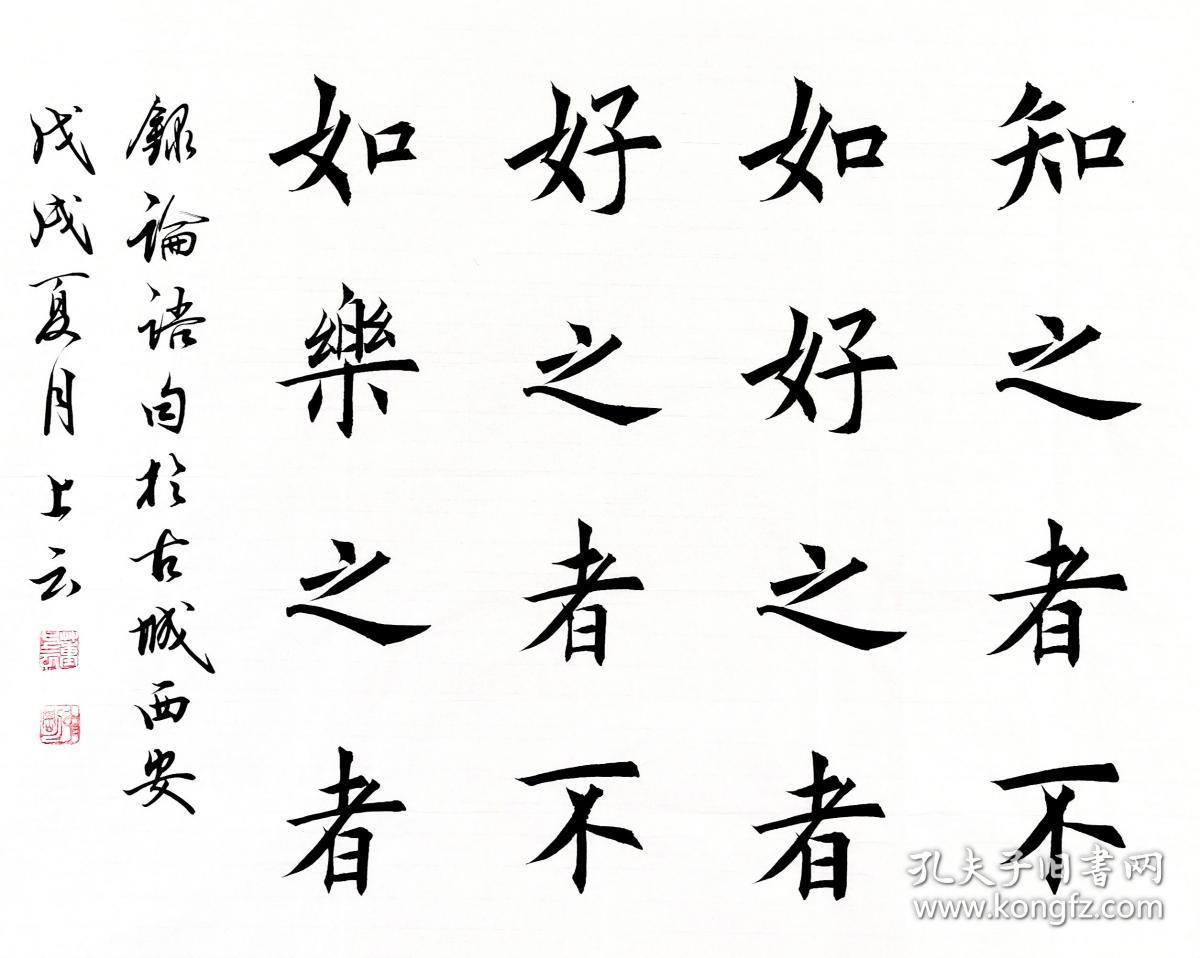 知之者不
如好之者
好之者不
如樂之者
錄論語句於古城西安
戊戌夏月上云
孔夫子旧书网
www.kongfz.com